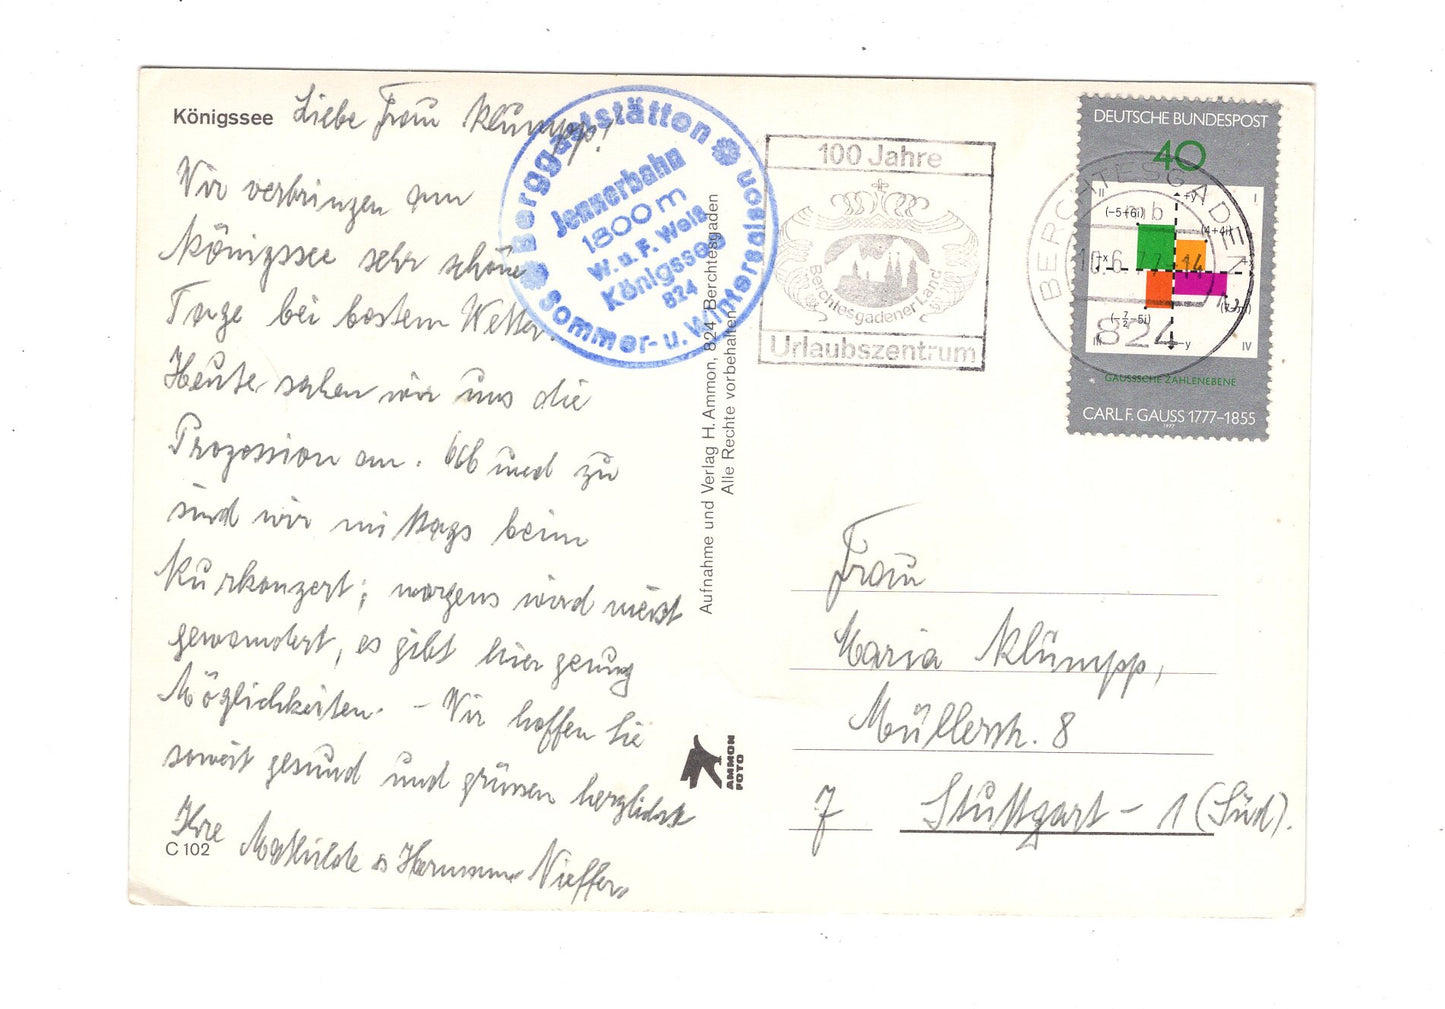 Königssee
Liebe Frau Klumpp!
Wir verbringen am
Königssee sehr schöne
Tage bei bestem Wetter.
Heute sahen wir uns die
Prozession an. Ab und zu
sind wir mittags beim
Kurkonzert; morgens wird meist
gewandert, es gibt hier genug
Möglichkeiten. – Wir hoffen Sie
soweit gesund und grüssen herzlichst
Ihre Mathilde & Hermann Nieffer
C 102
Berggaststätten
Jennerbahn
1800 m
W. u. F. Weiß
Königssee
824
Sommer- u. Wintersaison
Aufnahme und Verlag H. Ammon, 824 Berchtesgaden
Alle Rechte vorbehalten
AMMON
FOTO
100 Jahre
Berchtesgadener Land
Urlaubszentrum
BERCHTESGADEN 1
mb
10.6.77-14
824
DEUTSCHE BUNDESPOST
40
II +y I
(-5+6i) (4+4i)
-x +x
(-7/2-5i)
III -y IV
GAUSSSCHE ZAHLENEBENE
CARL F. GAUSS 1777–1855
1977
Frau
Maria Klumpp,
Müllerstr. 8
7 Stuttgart – 1 (Süd).